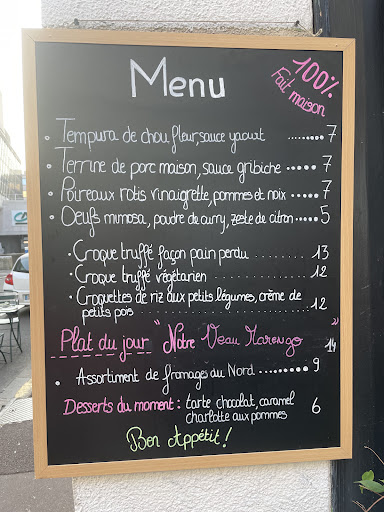 Menu
100%
Fait maison
• Tempura de chou fleur, sauce yaourt ........ 7
• Terrine de porc maison, sauce gribiche ..... 7
• Poireaux rotis vinaigrette, pommes et noix ..... 7
• Oeufs mimosa, poudre de curry, zeste de citron ..... 5
• Croque truffé façon pain perdu ........ 13
• Croque truffé végétarien ........ 12
• Croquettes de riz aux petits légumes, crème de
petits pois ........ 12
Plat du jour "Notre Veau Marengo" 14
• Assortiment de fromages du Nord ........ 9
Desserts du moment : tarte chocolat, caramel
charlotte aux pommes 6
Bon Appétit !